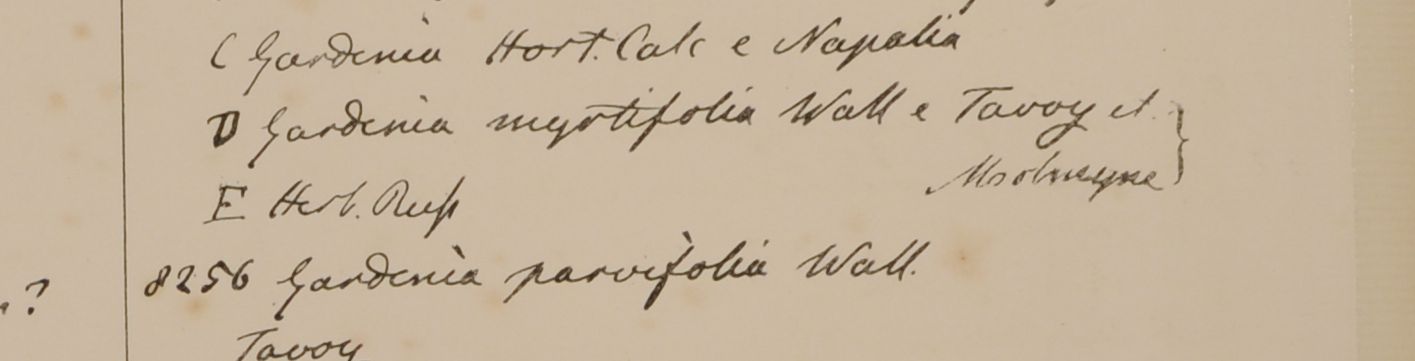 C Gardenia Hort. Calc e Napalia
D Gardenia myrtifolia Wall e Tavoy et
Moolmeyne
E Herb. Russ
8256 Gardenia parvifolia Wall.
?
Tavoy